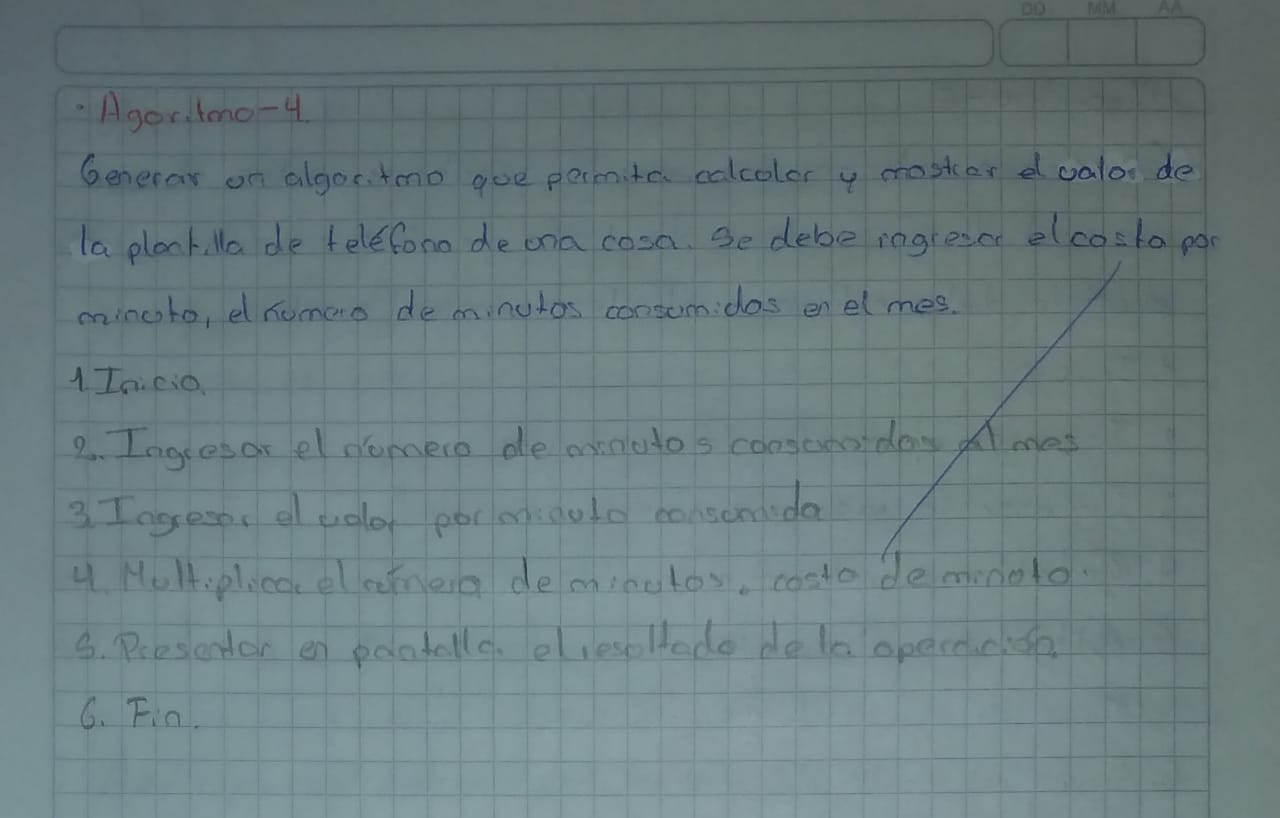 DD MM AA
· Agoritmo-4.
Generar un algoritmo que permita calcular y mostrar el valor de
la plantilla de teléfono de una casa. Se debe ingresar el costo por
minuto, el número de minutos consumidos en el mes.
1. Inicio.
2. Ingresar el número de minutos consumidos al mes
3. Ingresar el valor por minuto consumida
4. Multiplicar el número de minutos . costo de minuto.
5. Presentar en pantalla el resultado de la operación.
6. Fin.